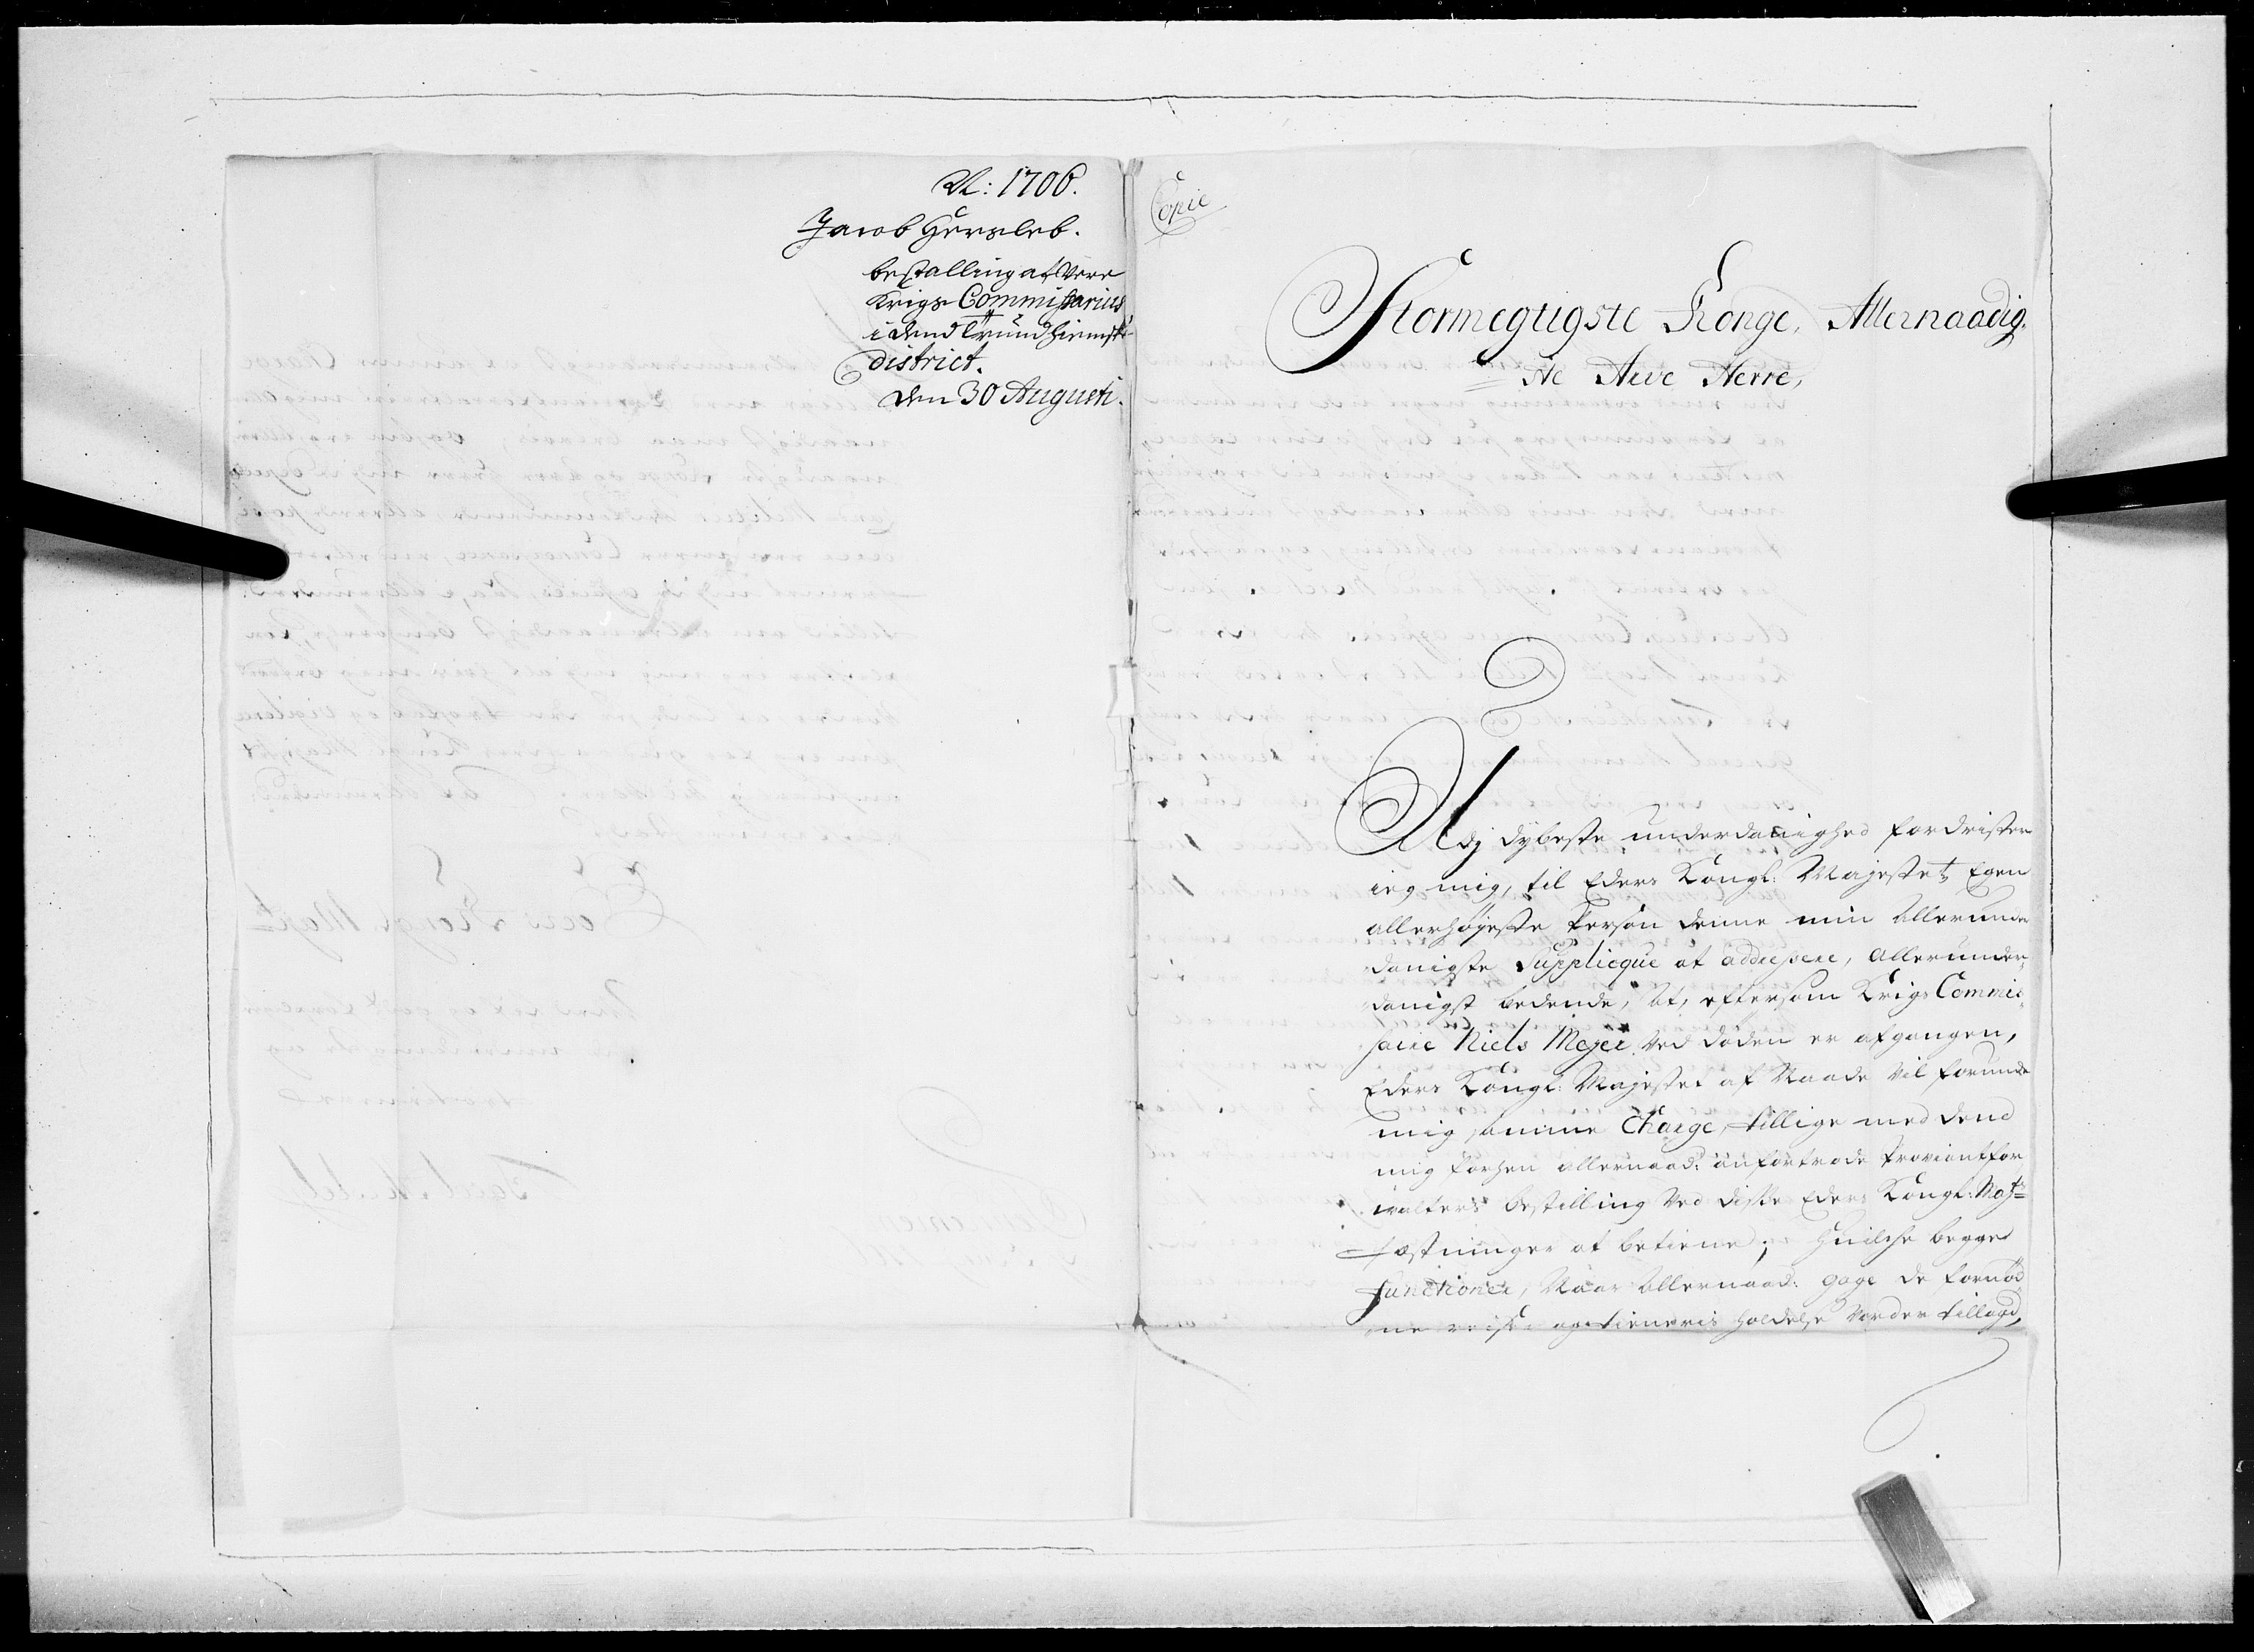 A: 1706.
Jacob Hersleb.
bestalling at Være
Krigs Commissarius
i dend Trundhiemske
district.
den 30 Augusti.
Copie
Stormegtigste Konge, Allernaadig¬
ste Arve Herre,
Udj dybeste underdanighed fordrister
ieg mig, til Eders Kongl: Majestets Egen
allerhøjeste Person denne min allerunder
danigste Supplicque at addressere, allerunder¬
danigst bedende, at, eftersom Krigs Commis¬
saire Niels Mejer ved døden er afgangen,
Eders Kongl: Majestet af Naade vil forunde
mig samme Charge, tillige med dend
mig forhen allernaad: anfortrode Proviantfor
walters bestilling ved disse Eders Kongl: Majts
fæstninger at betiene; Huilche begge
Functioner, Naar allernaad: gage de fornød
ne reise og tieneris holdelse vorder tillagd,